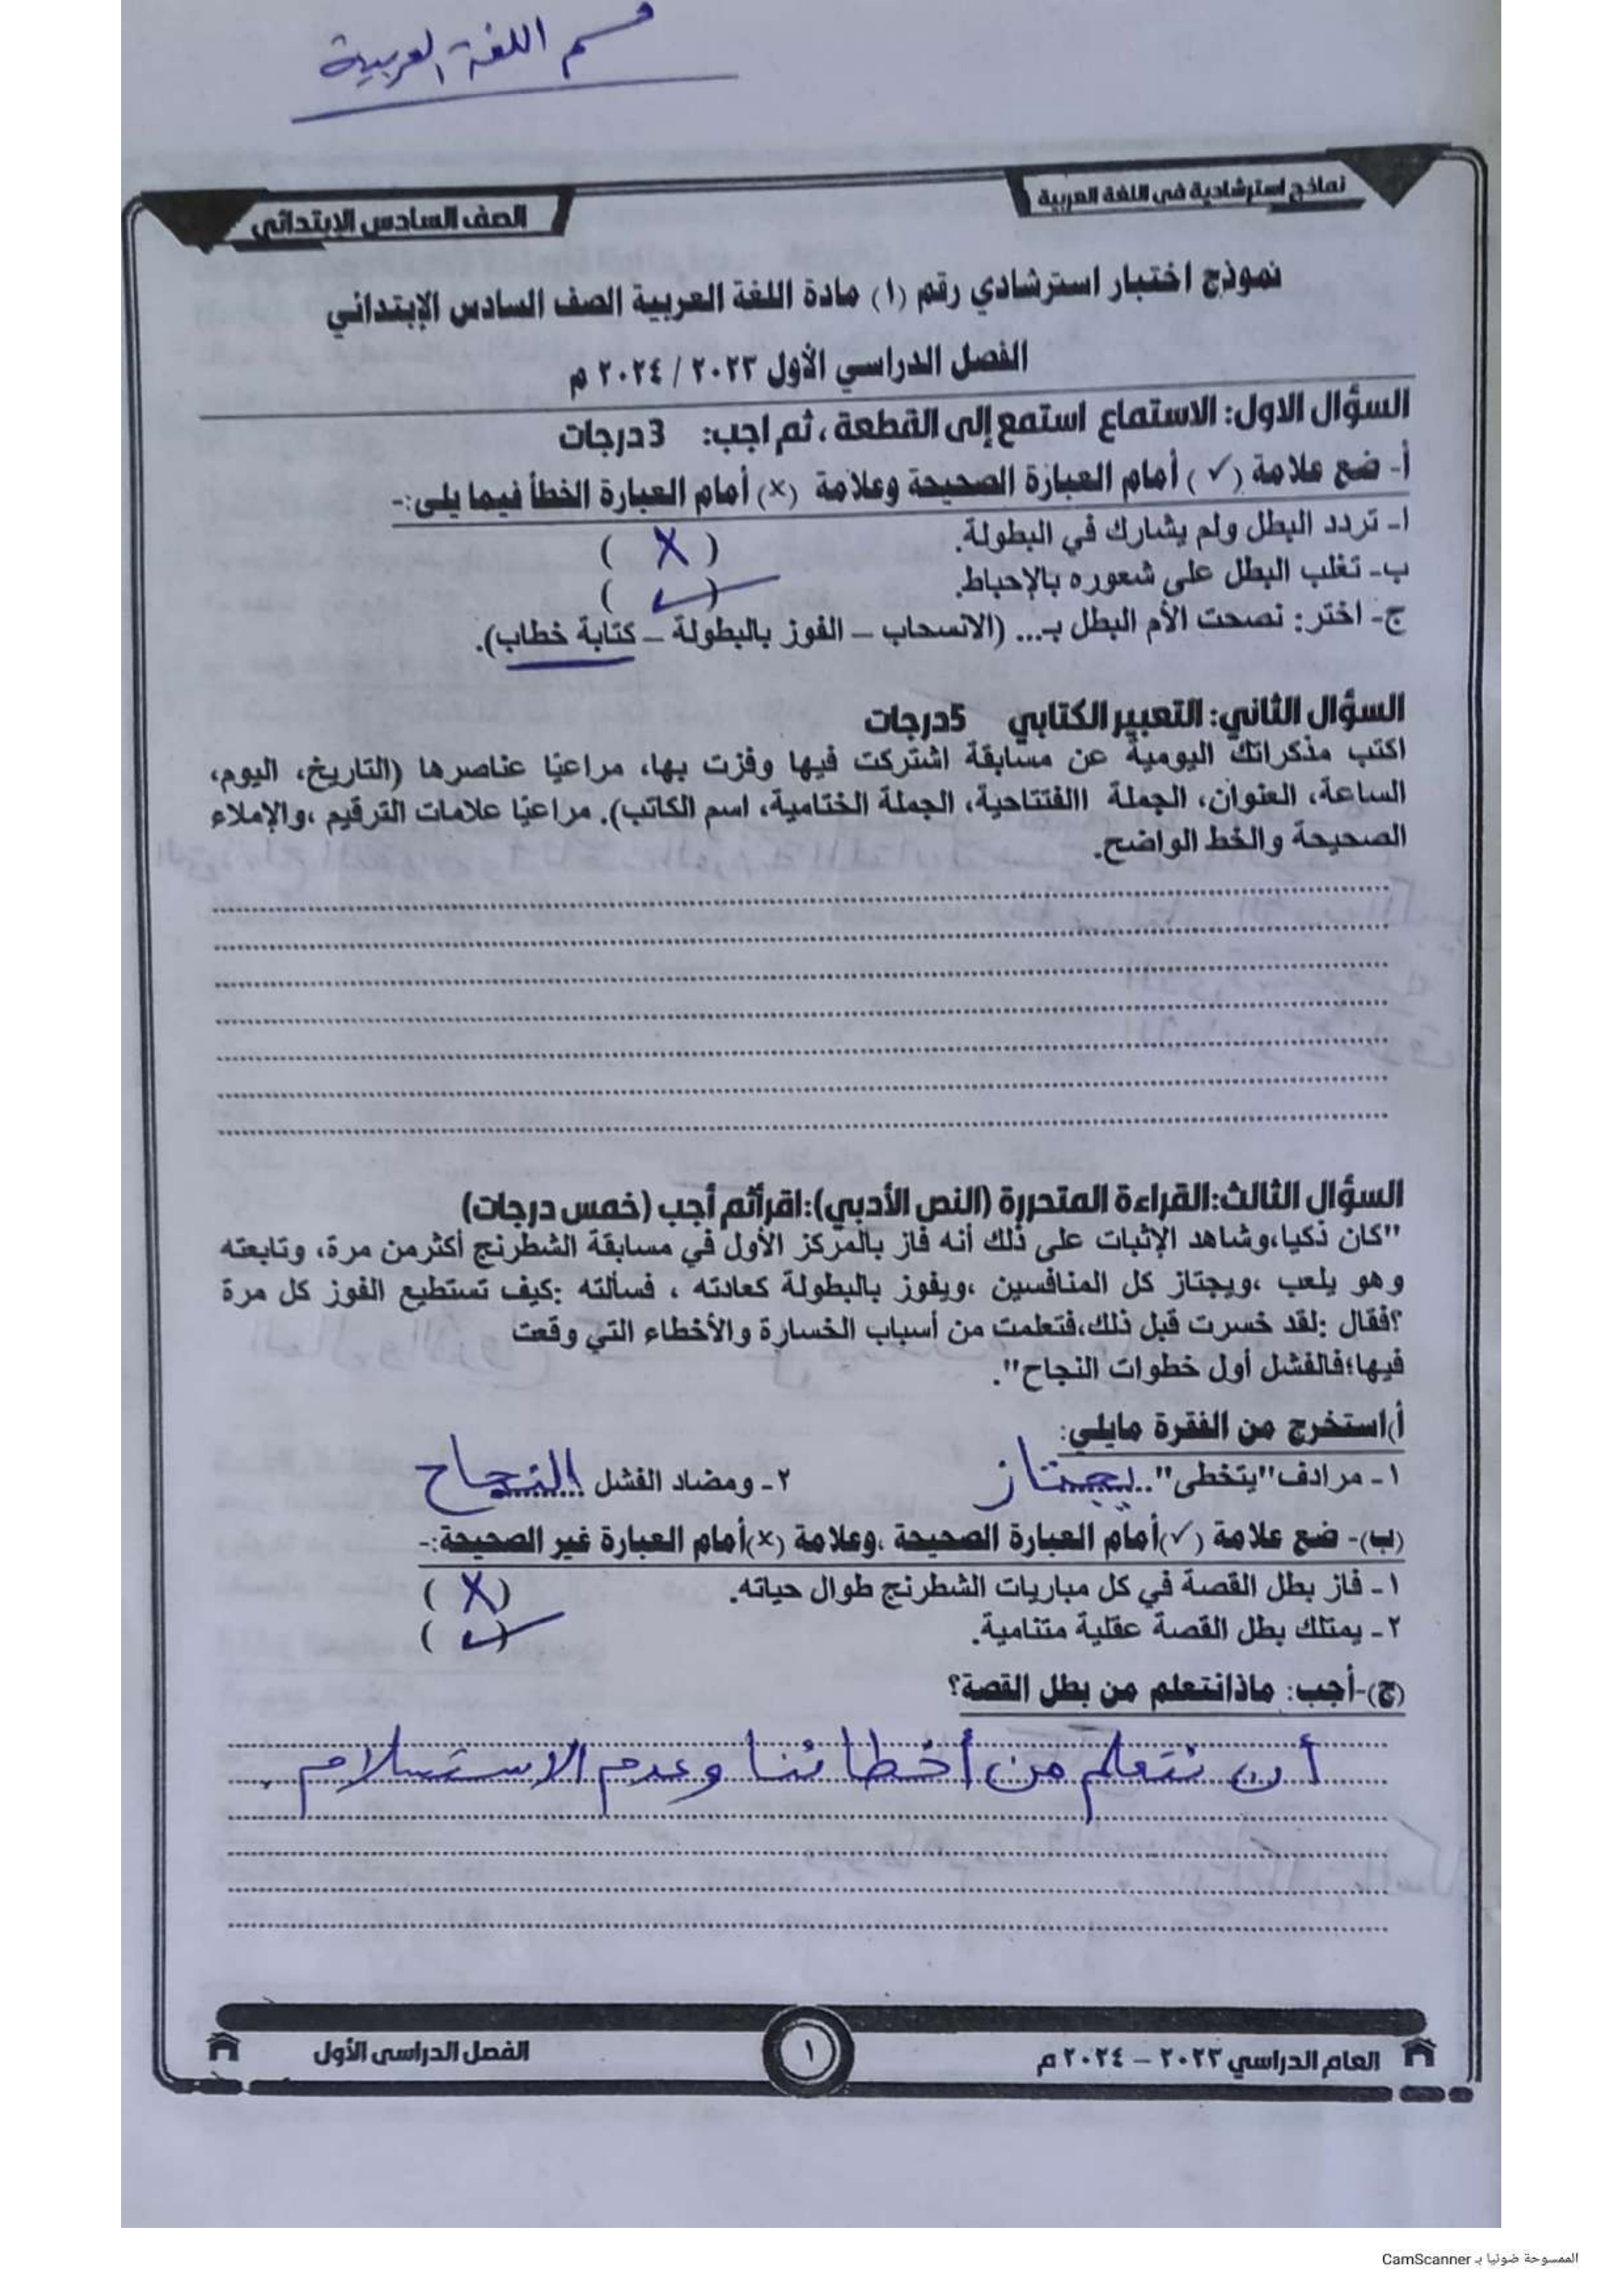 قسم اللغة العربية
نماذج استرشادية فى اللغة العربية
الصف السادس الإبتدائى
نموذج اختبار استرشادي رقم (١) مادة اللغة العربية الصف السادس الإبتدائي
الفصل الدراسي الأول ٢٠٢٣ / ٢٠٢٤ م
السؤال الاول: الاستماع استمع إلى القطعة ، ثم اجب: 3 درجات
أ- ضع علامة (✓) أمام العبارة الصحيحة وعلامة (×) أمام العبارة الخطأ فيما يلى:-
ا- تردد البطل ولم يشارك في البطولة. ( X )
ب- تغلب البطل على شعوره بالإحباط. ( ✓ )
ج- اختر: نصحت الأم البطل بـ... (الانسحاب – الفوز بالبطولة – كتابة خطاب).
السؤال الثاني: التعبير الكتابي 5درجات
اكتب مذكراتك اليومية عن مسابقة اشتركت فيها وفزت بها، مراعيًا عناصرها (التاريخ، اليوم،
الساعة، العنوان، الجملة االفتتاحية، الجملة الختامية، اسم الكاتب). مراعيًا علامات الترقيم ،والإملاء
الصحيحة والخط الواضح.
السؤال الثالث:القراءة المتحررة (النص الأدبي):اقرأثم أجب (خمس درجات)
"كان ذكيا،وشاهد الإثبات على ذلك أنه فاز بالمركز الأول في مسابقة الشطرنج أكثرمن مرة، وتابعته
وهو يلعب ،ويجتاز كل المنافسين ،ويفوز بالبطولة كعادته ، فسألته :كيف تستطيع الفوز كل مرة
؟فقال :لقد خسرت قبل ذلك،فتعلمت من أسباب الخسارة والأخطاء التي وقعت
فيها؛فالفشل أول خطوات النجاح".
أ)استخرج من الفقرة مايلي:
١- مرادف"يتخطى"..يجتاز ٢- ومضاد الفشل النجاح
(ب)- ضع علامة (✓)أمام العبارة الصحيحة ،وعلامة (×)أمام العبارة غير الصحيحة:-
١- فاز بطل القصة في كل مباريات الشطرنج طوال حياته. ( X )
٢- يمتلك بطل القصة عقلية متنامية. ( ✓ )
(ج)-أجب: ماذانتعلم من بطل القصة؟
أن نتعلم من أخطائنا وعدم الاستسلام .
العام الدراسي ٢٠٢٣ – ٢٠٢٤ م
١
الفصل الدراسى الأول
الممسوحة ضوئيا بـ CamScanner